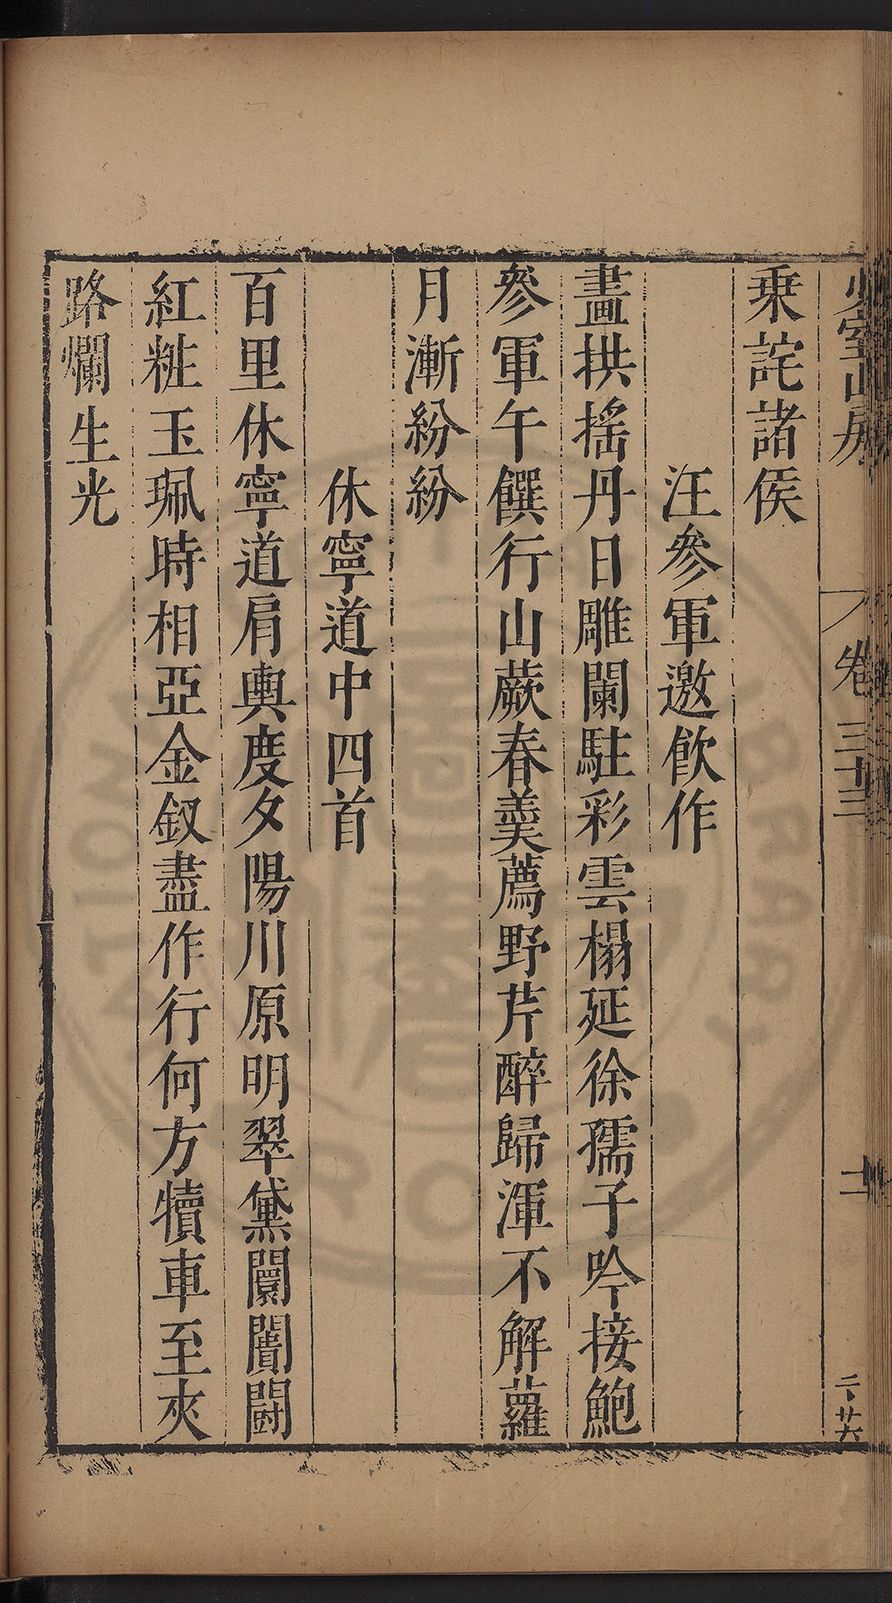 卷三十三
二
乗詫諸侯
汪參軍邀飮作
畫拱搖丹日雕闌駐彩雲榻延徐孺子吟接鮑
參軍午饌行山蕨春羹薦野芹醉歸渾不解蘿
月漸紛紛
休寧道中四首
百里休寧道肩輿度夕陽川原明翠黛闤闠闘
紅粧玉珮時相亞金釵盡作行何方犢車至夾
路爛生光